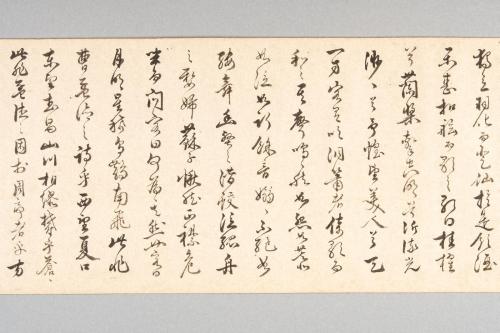 獨立羽化而登仙於是飲酒
樂甚扣舷而歌之歌曰桂棹
兮蘭槳擊空明兮泝流光
渺〻兮予懷望美人兮天
一方客有吹洞簫者倚歌而
和之其聲嗚〻然如怨如慕
如泣如訴餘音嫋〻不絕如
縷舞幽壑之潛蛟泣孤舟
之嫠婦蘇子愀然正襟危
坐而問客曰何為其然也客曰
月明星稀烏鵲南飛此非
曹孟德之詩乎西望夏口
東望武昌山川相繆鬱乎蒼〻
此非孟德之困於周郎者乎方